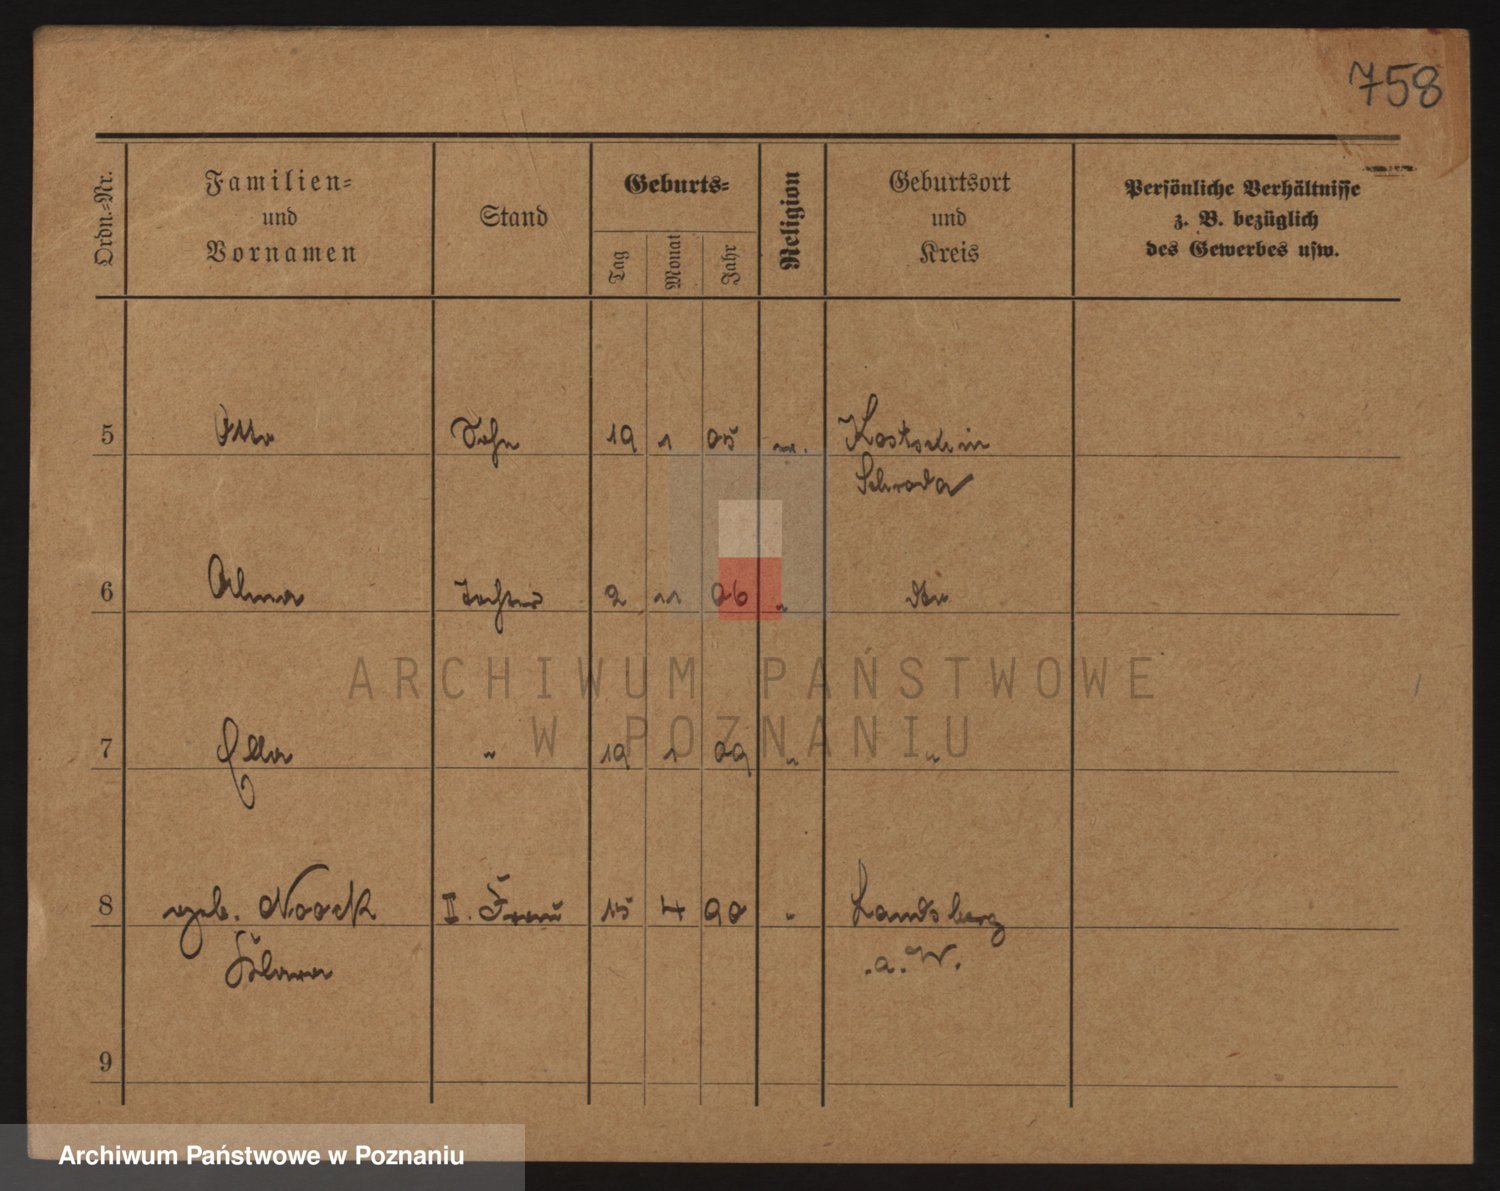 758
Ordn.-Nr.
Familien-
und
Vornamen
Stand
Geburts-
Tag
Monat
Jahr
Religion
Geburtsort
und
Kreis
Persönliche Verhältnisse
z. B. bezüglich
des Gewerbes usw.
5 Otto Sohn 19 1 05 Kostschin
Schroda
6 Alma Tochter 2 11 06 " dto
ARCHIWUM PAŃSTWOWE
W POZNANIU
7 Ella " 19 1 09 " "
8 geb. Noack II. Frau 15 4 90 " Landsberg
Klara a. W.
9
Archiwum Państwowe w Poznaniu